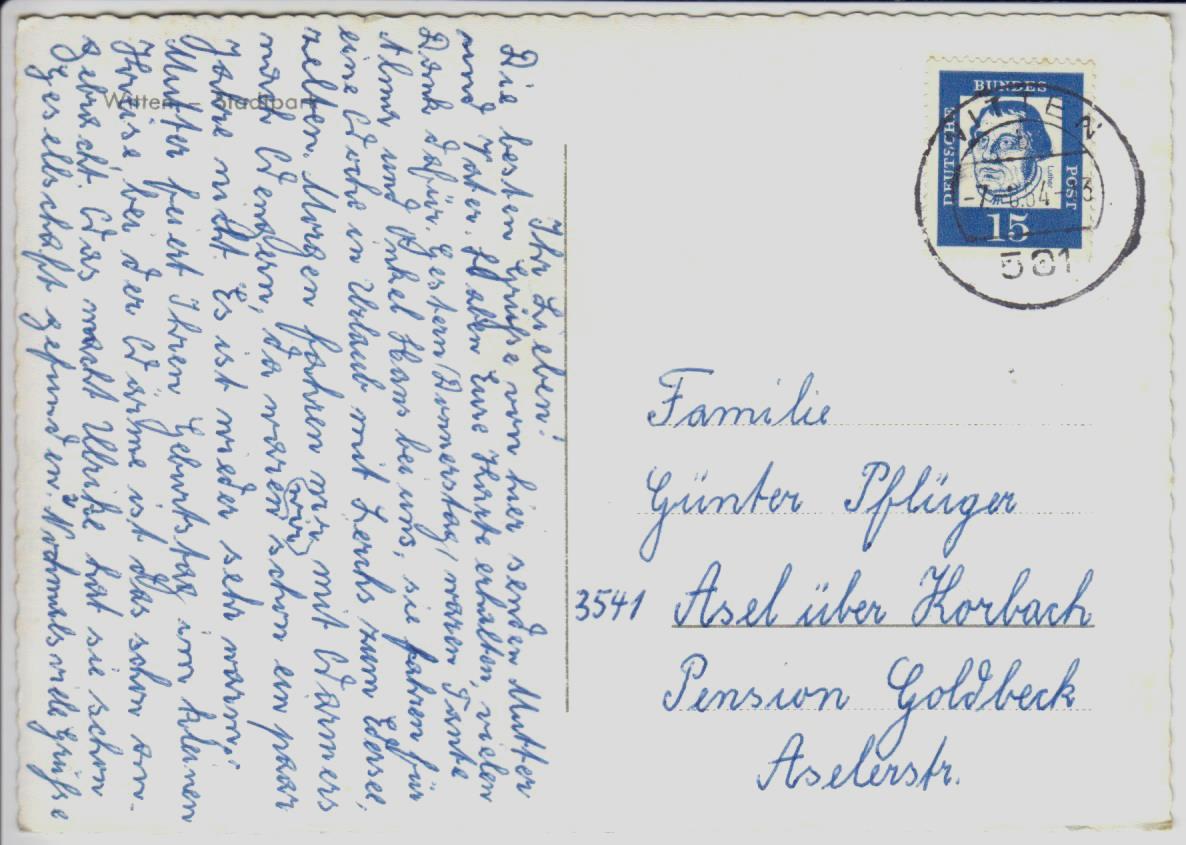 Witten – Stadtpark
Ihr Lieben!
Die besten Grüße von hier senden Mutter
und Vater. Haben Eure Karte erhalten, vielen
Dank dafür. Gestern (Donnerstag) waren Tante
Alma und Onkel Hans bei uns, sie fahren für
eine Woche in Urlaub mit Lerchs zum Edersee,
zelten. Morgen fahren wir mit Warmers
nach Wengern, da waren wir schon ein paar
Jahre nicht. Es ist wieder sehr warm.
Mutter feiert Ihren Geburtstag im kleinen
Kreise, bei der Wärme ist das schon an-
gebracht. Was macht Ulrike hat sie schon
Gesellschaft gefunden. Nochmals viele Grüße
DEUTSCHE
BUNDES
POST
Luther
15
WITTEN
581
Familie
Günter Pflüger
3541 Asel über Korbach
Pension Goldbeck
Aselerstr.